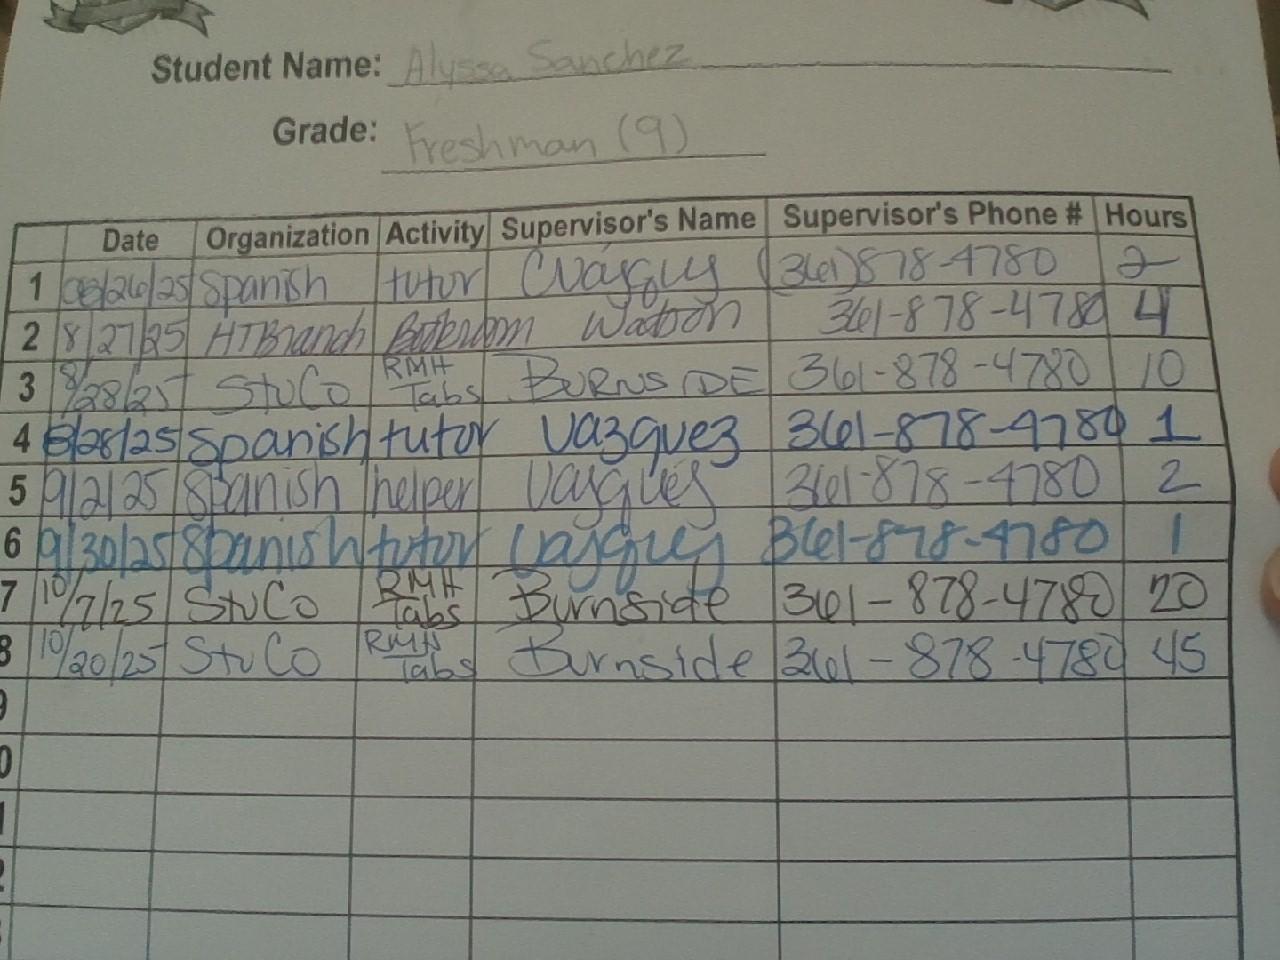 Student Name: Alyssa Sanchez
Grade: Freshman (9)
Date Organization Activity Supervisor's Name Supervisor's Phone # Hours
1 08/26/25 Spanish tutor (361)878-4780 2
2 8/27/25 Watson 361-878-4780 4
3 8/28/25 StuCo RMH Tabs BURNSIDE 361-878-4780 10
4 8/28/25 Spanish tutor Vazquez 361-878-4780 1
5 9/2/25 Spanish helper Vazquez 361-878-4780 2
6 9/30/25 Spanish tutor Vazquez 361-878-4780 1
7 10/7/25 StuCo RMH Tabs Burnside 361-878-4780 20
8 10/20/25 StuCo RMH Tabs Burnside 361-878-4780 45